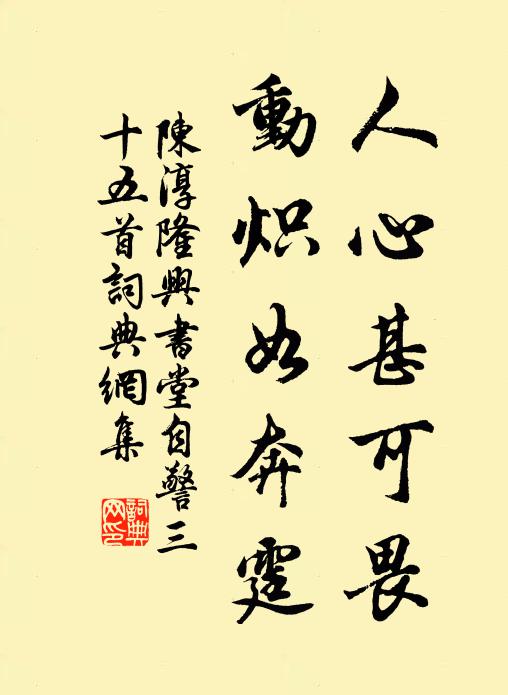 人心甚可畏
動炽如奔霆
陳淳隆興書堂自警三
十五首詞典網集
詞典
网印